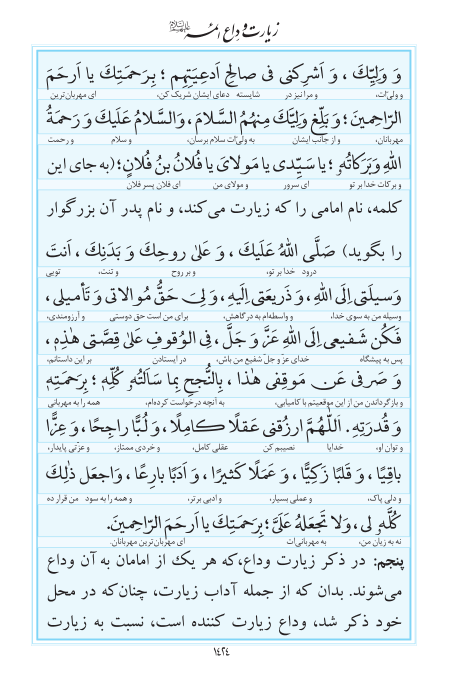 زیارت وداع ائمه علیهم‌السلام
وَ وَلِيِّكَ ، وَ اَشرِكنى فى صالِحِ اَدعِيَتِهِم ؛ بِرَحمَتِكَ يا اَرحَمَ
و ولیّ‌ات، و مرا نیز در شایسته دعای ایشان شریک کن، ای مهربان‌ترین
الرّاحِمينَ ؛ وَ بَلِّغ وَلِيَّكَ مِنهُمُ السَّلامَ ، وَ السَّلامُ عَلَيكَ وَ رَحمَةُ
مهربانان، و از جانب ایشان به ولیّ‌ات سلام برسان، و سلام و رحمت
اللهِ وَ بَرَكاتُهُ ؛ يا سَيِّدى يا مَولاىَ يا فُلانُ بنُ فُلانٍ؛ (به جای این
و برکات خدا بر تو ای سرور و مولای من ای فلان پسر فلان
کلمه، نام امامی را که زیارت می‌کند، و نام پدر آن بزرگوار
را بگوید) صَلَّى اللهُ عَلَيكَ ، وَ عَلىٰ روحِكَ وَ بَدَنِكَ ، اَنتَ
درود خدا بر تو، و بر روح و تنت، تویی
وَسيلَتى اِلَى اللهِ، وَ ذَريعَتى اِلَيهِ، وَلى حَقُّ مُوالاتى وَ تَأميلى ،
وسیله من به سوی خدا، و واسطه‌ام به درگاهش، برای من است حق دوستی و آرزومندی،
فَكُن شَفيعى اِلَى اللهِ عَزَّ وَ جَلَّ ، فِى الوُقوفِ عَلىٰ قِصَّتى هٰذِهِ ،
پس به پیشگاه خدای عز و جل شفیع من باش، در ایستادن بر این داستانم،
وَ صَرفى عَن مَوقِفى هٰذا ، بِالنُّجحِ بِما سَأَلتُهُ كُلِّهِ ؛ بِرَحمَتِهِ
و بازگرداندن من از این موقعیتم با کامیابی، به آنچه درخواست کرده‌ام، همه را به مهربانی
وَ قُدرَتِهِ. اَللّٰهُمَّ ارزُقنى عَقلًا كامِلًا ، وَ لُبًّا راجِحًا ، وَ عِزًّا
و توان او، خدایا نصیبم کن عقلی کامل، و خردی ممتاز، و عزّتی پایدار،
باقِيًا ، وَ قَلبًا زَكِيًّا ، وَ عَمَلًا كَثيرًا ، وَ اَدَبًا بارِعًا ، وَاجعَل ذٰلِكَ
و دلی پاک، و عملی بسیار، و ادبی برتر، و همه را به سود من قرار ده
كُلَّهُ لى ، وَلا تَجعَلهُ عَلَىَّ ؛ بِرَحمَتِكَ يا اَرحَمَ الرّاحِمينَ.
نه به زیان من، به مهربانی‌ات ای مهربان‌ترین مهربانان.
پنجم: در ذکر زیارت وداع، که هر یک از امامان به آن وداع
می‌شوند. بدان که از جمله آداب زیارت، چنان‌که در محل
خود ذکر شد، وداع زیارت کننده است، نسبت به زیارت
۱۴۲۴